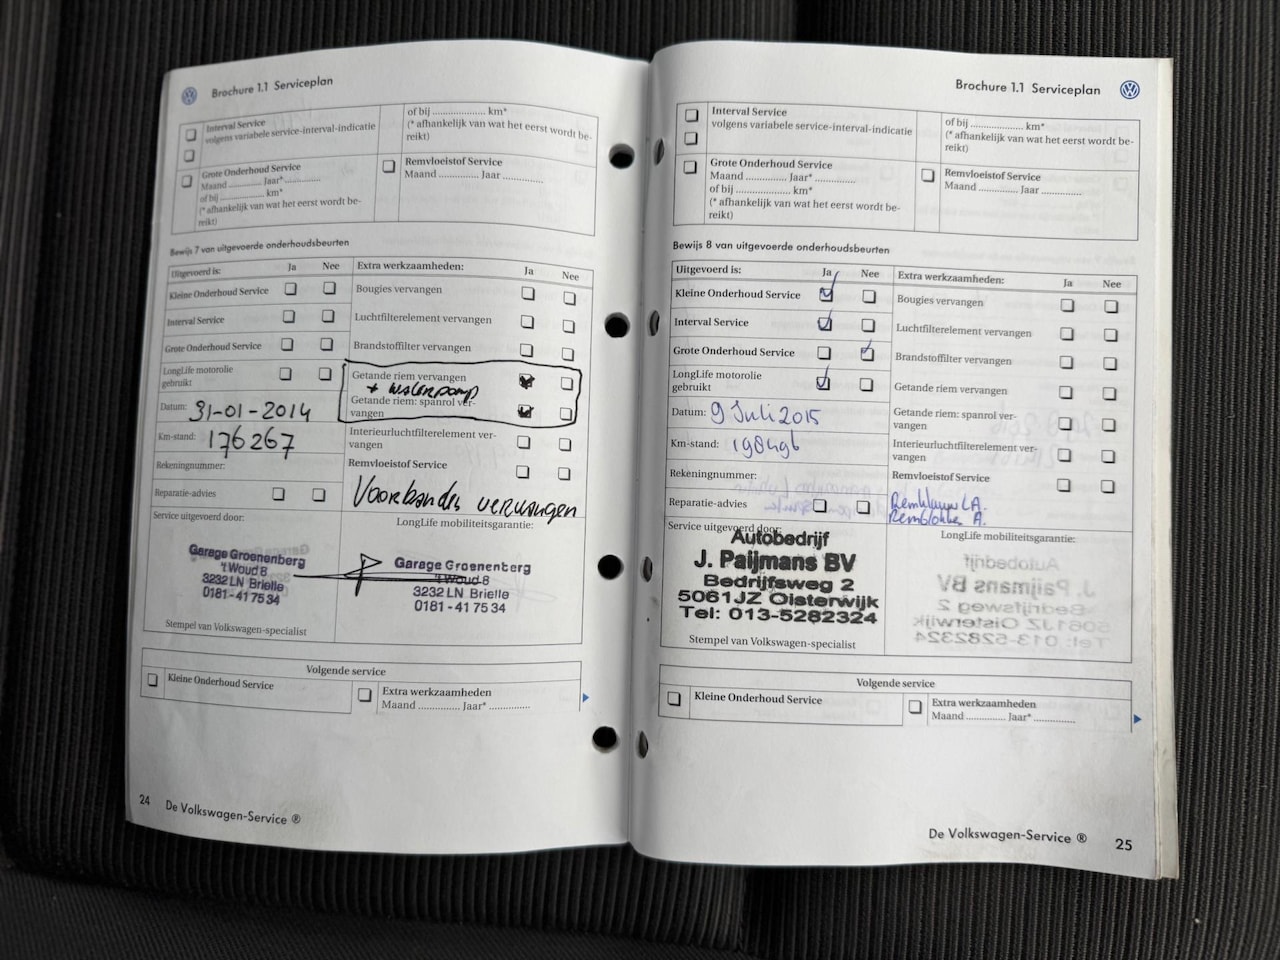 Brochure 1.1 Serviceplan
Interval Service
volgens variabele service-interval-indicatie
of bij .................. km*
(* afhankelijk van wat het eerst wordt be-
reikt)
Grote Onderhoud Service
Maand ............ Jaar* .............
of bij ................... km*
(* afhankelijk van wat het eerst wordt be-
reikt)
Remvloeistof Service
Maand .............. Jaar ..............
Bewijs 7 van uitgevoerde onderhoudsbeurten
Uitgevoerd is: Ja Nee
Kleine Onderhoud Service
Interval Service
Grote Onderhoud Service
LongLife motorolie
gebruikt
Datum: 31-01-2014
Km-stand: 176267
Rekeningnummer:
Reparatie-advies
Extra werkzaamheden: Ja Nee
Bougies vervangen
Luchtfilterelement vervangen
Brandstoffilter vervangen
Getande riem vervangen
+ waterpomp
Getande riem: spanrol ver-
vangen
Interieurluchtfilterelement ver-
vangen
Remvloeistof Service
Voorbanden vervangen
Service uitgevoerd door:
Garage Groenenberg
't Woud 8
3232 LN Brielle
0181-41 75 34
Stempel van Volkswagen-specialist
LongLife mobiliteitsgarantie:
Garage Groenenberg
't Woud 8
3232 LN Brielle
0181-41 75 34
Volgende service
Kleine Onderhoud Service
Extra werkzaamheden
Maand .............. Jaar* ..............
24 De Volkswagen-Service ®
Brochure 1.1 Serviceplan
Interval Service
volgens variabele service-interval-indicatie
of bij .................. km*
(* afhankelijk van wat het eerst wordt be-
reikt)
Grote Onderhoud Service
Maand ............. Jaar* ..............
of bij ................... km*
(* afhankelijk van wat het eerst wordt be-
reikt)
Remvloeistof Service
Maand .............. Jaar ..............
Bewijs 8 van uitgevoerde onderhoudsbeurten
Uitgevoerd is: Ja Nee
Kleine Onderhoud Service
Interval Service
Grote Onderhoud Service
LongLife motorolie
gebruikt
Datum: 9 Juli 2015
Km-stand: 198496
Rekeningnummer:
Reparatie-advies
Extra werkzaamheden: Ja Nee
Bougies vervangen
Luchtfilterelement vervangen
Brandstoffilter vervangen
Getande riem vervangen
Getande riem: spanrol ver-
vangen
Interieurluchtfilterelement ver-
vangen
Remvloeistof Service
A.
Remblokken A.
Service uitgevoerd door:
Autobedrijf
J. Paijmans BV
Bedrijfsweg 2
5061JZ Oisterwijk
Tel: 013-5282324
Stempel van Volkswagen-specialist
LongLife mobiliteitsgarantie:
Volgende service
Kleine Onderhoud Service
Extra werkzaamheden
Maand .............. Jaar* ..............
De Volkswagen-Service ® 25